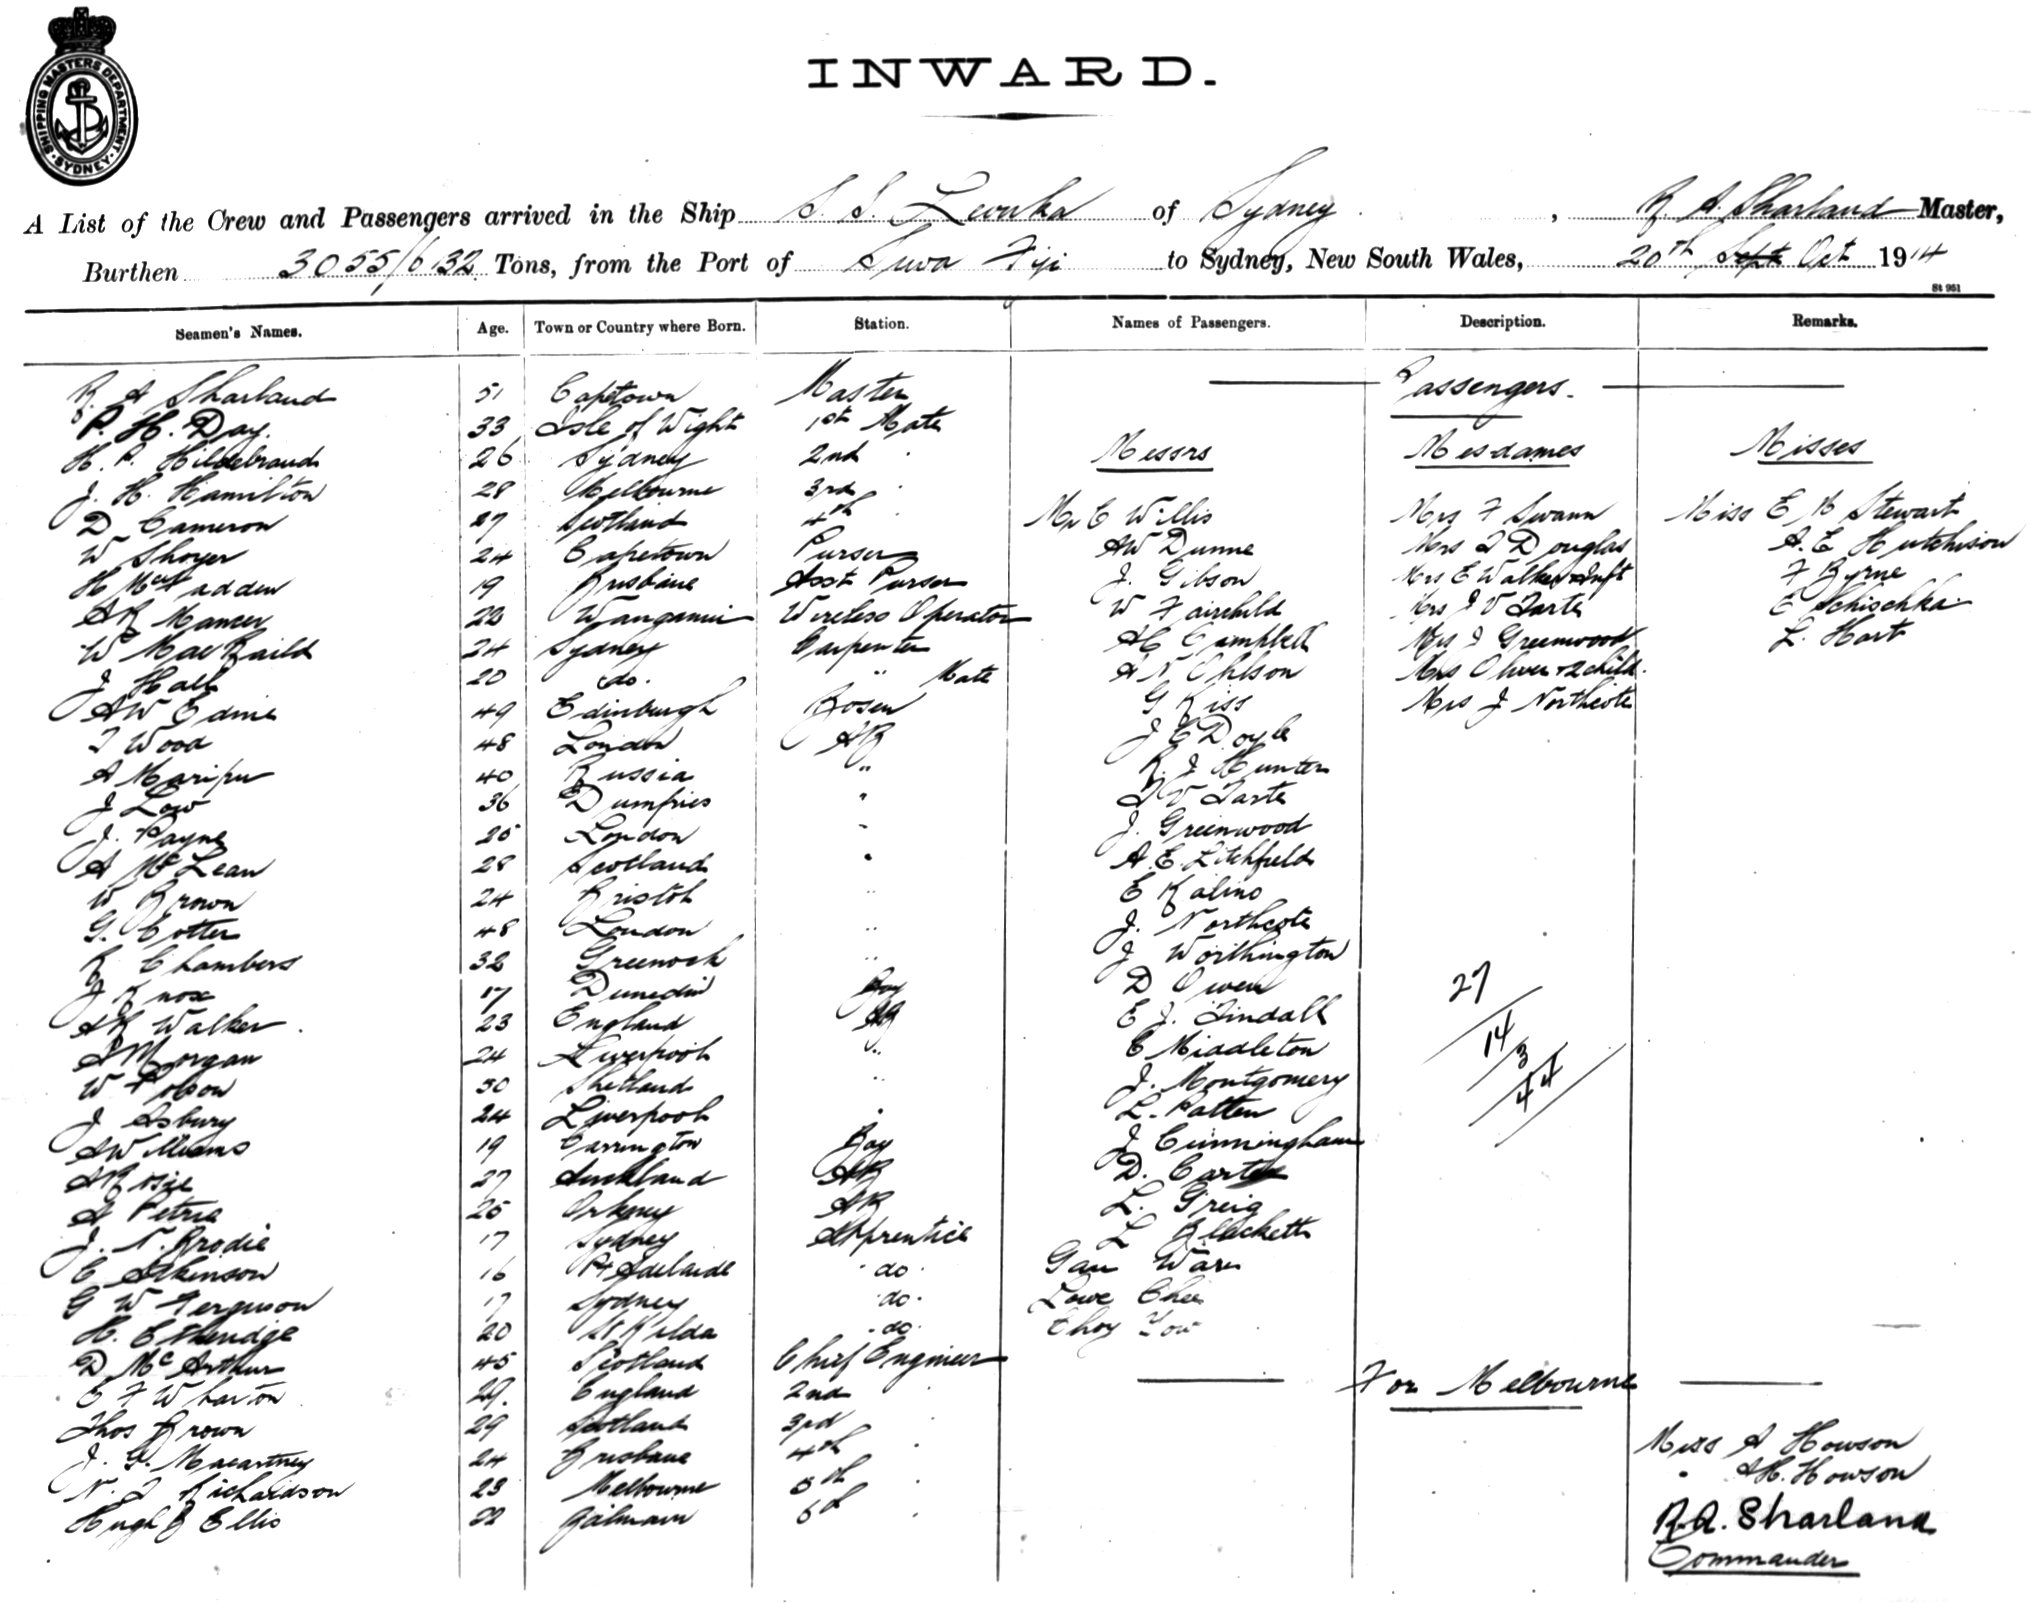 SHIPPING MASTERS DEPARTMENT
SYDNEY
INWARD.
A List of the Crew and Passengers arrived in the Ship S. S. Levuka of Sydney, R A. Sharland Master,
Burthen 3055/6132 Tons, from the Port of Suva Fiji to Sydney, New South Wales, 20th Sept Oct 1914
St 951
Seamen's Names. Age. Town or Country where Born. Station. Names of Passengers. Description. Remarks.
R. A Sharland 51 Capetown Master
Passengers.
P. H. Day. 33 Isle of Wight 1st Mate
H. P. Hildebrand 26 Sydney 2nd "
Messrs Mesdames Misses
J. H. Hamilton 28 Melbourne 3rd "
D Cameron 27 Scotland 4th "
Mr C Willis Mrs F Swann Miss E M Stewart
W Shoyer 24 Capetown Purser
AW Dunne Mrs T Douglas A. E Hutchison
H McFadden 19 Brisbane Asst Purser
J. Gibson Mrs E Walker + Inft F Byrne
AR Mancer 22 Wanganui Wireless Operator
W Fairchild Mrs J V Tarte E Schischka
W MacRaild 24 Sydney Carpenter
AC Campbell Mrs J Greenwood L. Hart
J Hall 20 do. " Mate
A N Ohlson Mrs Oliver + 2 child.
AW Edine 49 Edinburgh Bosun
G Kiss Mrs J Northcote
T Wood 48 London AB
J E Doyle
A Maripu 40 Russia "
R. J Hunter
J Low 36 Dumfries "
J V Tarte
J. Payne 25 London "
J. Greenwood
A McLean 28 Scotland "
A. E. Litchfield
W Brown 24 Bristol "
E Kalino
G. Cotter 48 London "
J. Northcote
R Chambers 32 Greenock "
J Worthington
J Knox 17 Dunedin Boy
D Owen 27
AR Walker 23 England AB
E J. Tindall 14
A Morgan 24 Liverpool "
C Middleton 3
W Pobow 30 Shetland "
J. Montgomery 44
J Asbury 24 Liverpool "
L. Patten
A Williams 19 Carrington Boy
J Cunningham
A Rosie 27 Auckland AB
D. Carter
A Petrie 25 Orkney AB
L. Greig
J. N. Brodie 17 Sydney Apprentice
L Blackett
C Atkinson 16 Pt Adelaide do
Gau War
G W Ferguson 17 Sydney do.
Lowe Chee
H. Etheridge 20 St Kilda do
Choy Yow
D McArthur 45 Scotland Chief Engineer
For Melbourne
E F Wharton 29. England 2nd "
Thos Brown 29 Scotland 3rd
J. G. Macartney 24 Brisbane 4th "
Miss A Howson
N. J Richardson 23 Melbourne 5th
" AH. Howson
Hugh B Ellis 22 Balmain 6th "
R. A. Sharland
Commander